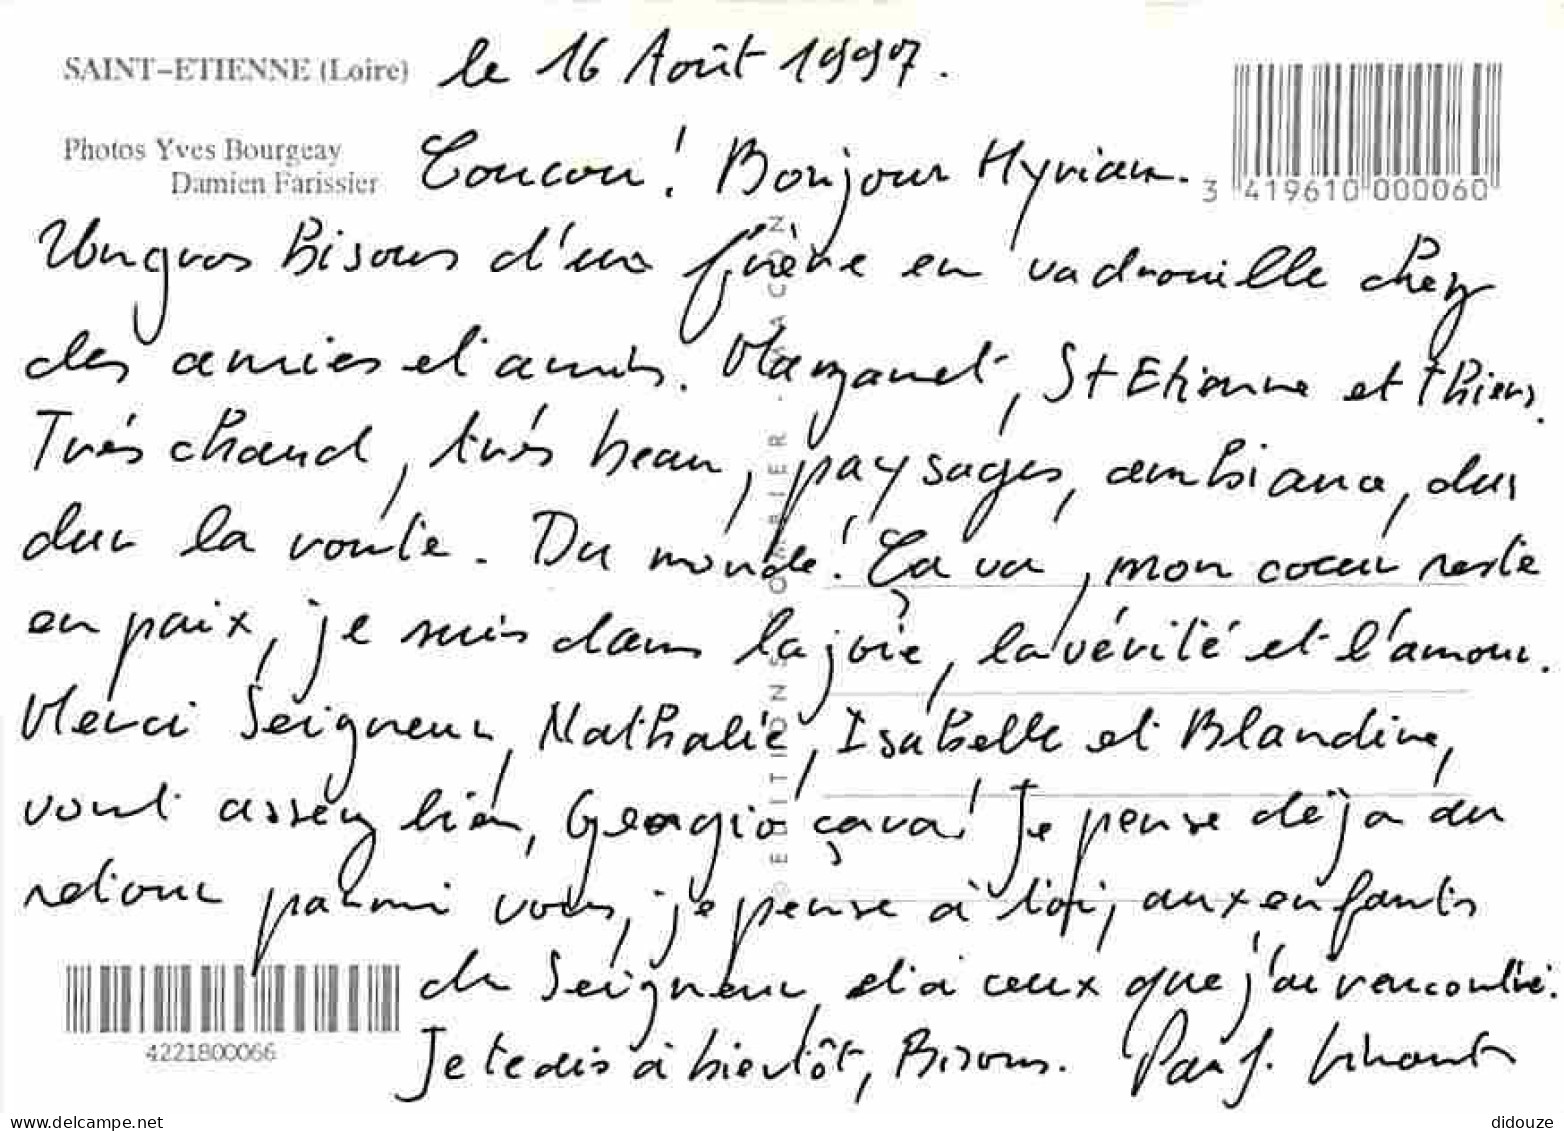 SAINT-ETIENNE (Loire)
le 16 Août 1997.
Photos Yves Bourgeay
Damien Farissier
Coucou! Bonjour Myriam.
3 419610 000060
Un gros Bisous d'un frère en vadrouille chez
des amies et amis. Mazamet, St Etienne et Thiers.
Très chaud, très beau, paysages, ambiance, dus
dur la route. Du monde! Ça va, mon cœur reste
en paix, je suis dans la joie, la vérité et l'amour.
Merci Seigneur, Nathalie, Isabelle et Blandine,
vont assez bien, Georgio çava! Je pense déjà au
retour parmi vous, je pense à toi, aux enfants
du Seigneur, et à ceux que j'ai rencontré.
4221800066
Je te dis à bientôt, Bisous.
EDITIONS COMBIER - MACON
www.delcampe.net
didouze